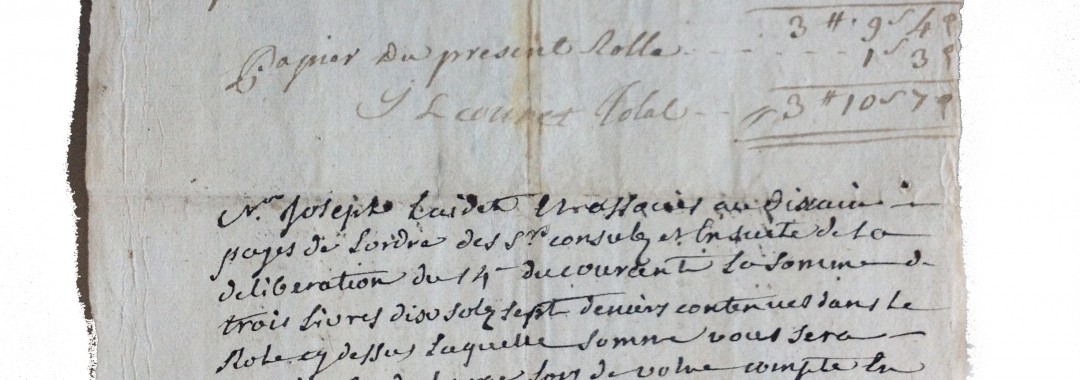 3 # 9 s 4 d
Papier du present Rolle 1 s 3 d
Total 3 # 10 s 7 d
Joseph au
payes de Lordre des Srs consulz et Ensuite de La
deliberation du 14e du courant La somme de
trois Livres dix solz sept deniers contenues dans Le
Role cy dessus Laquelle somme vous sera
de votre compte En